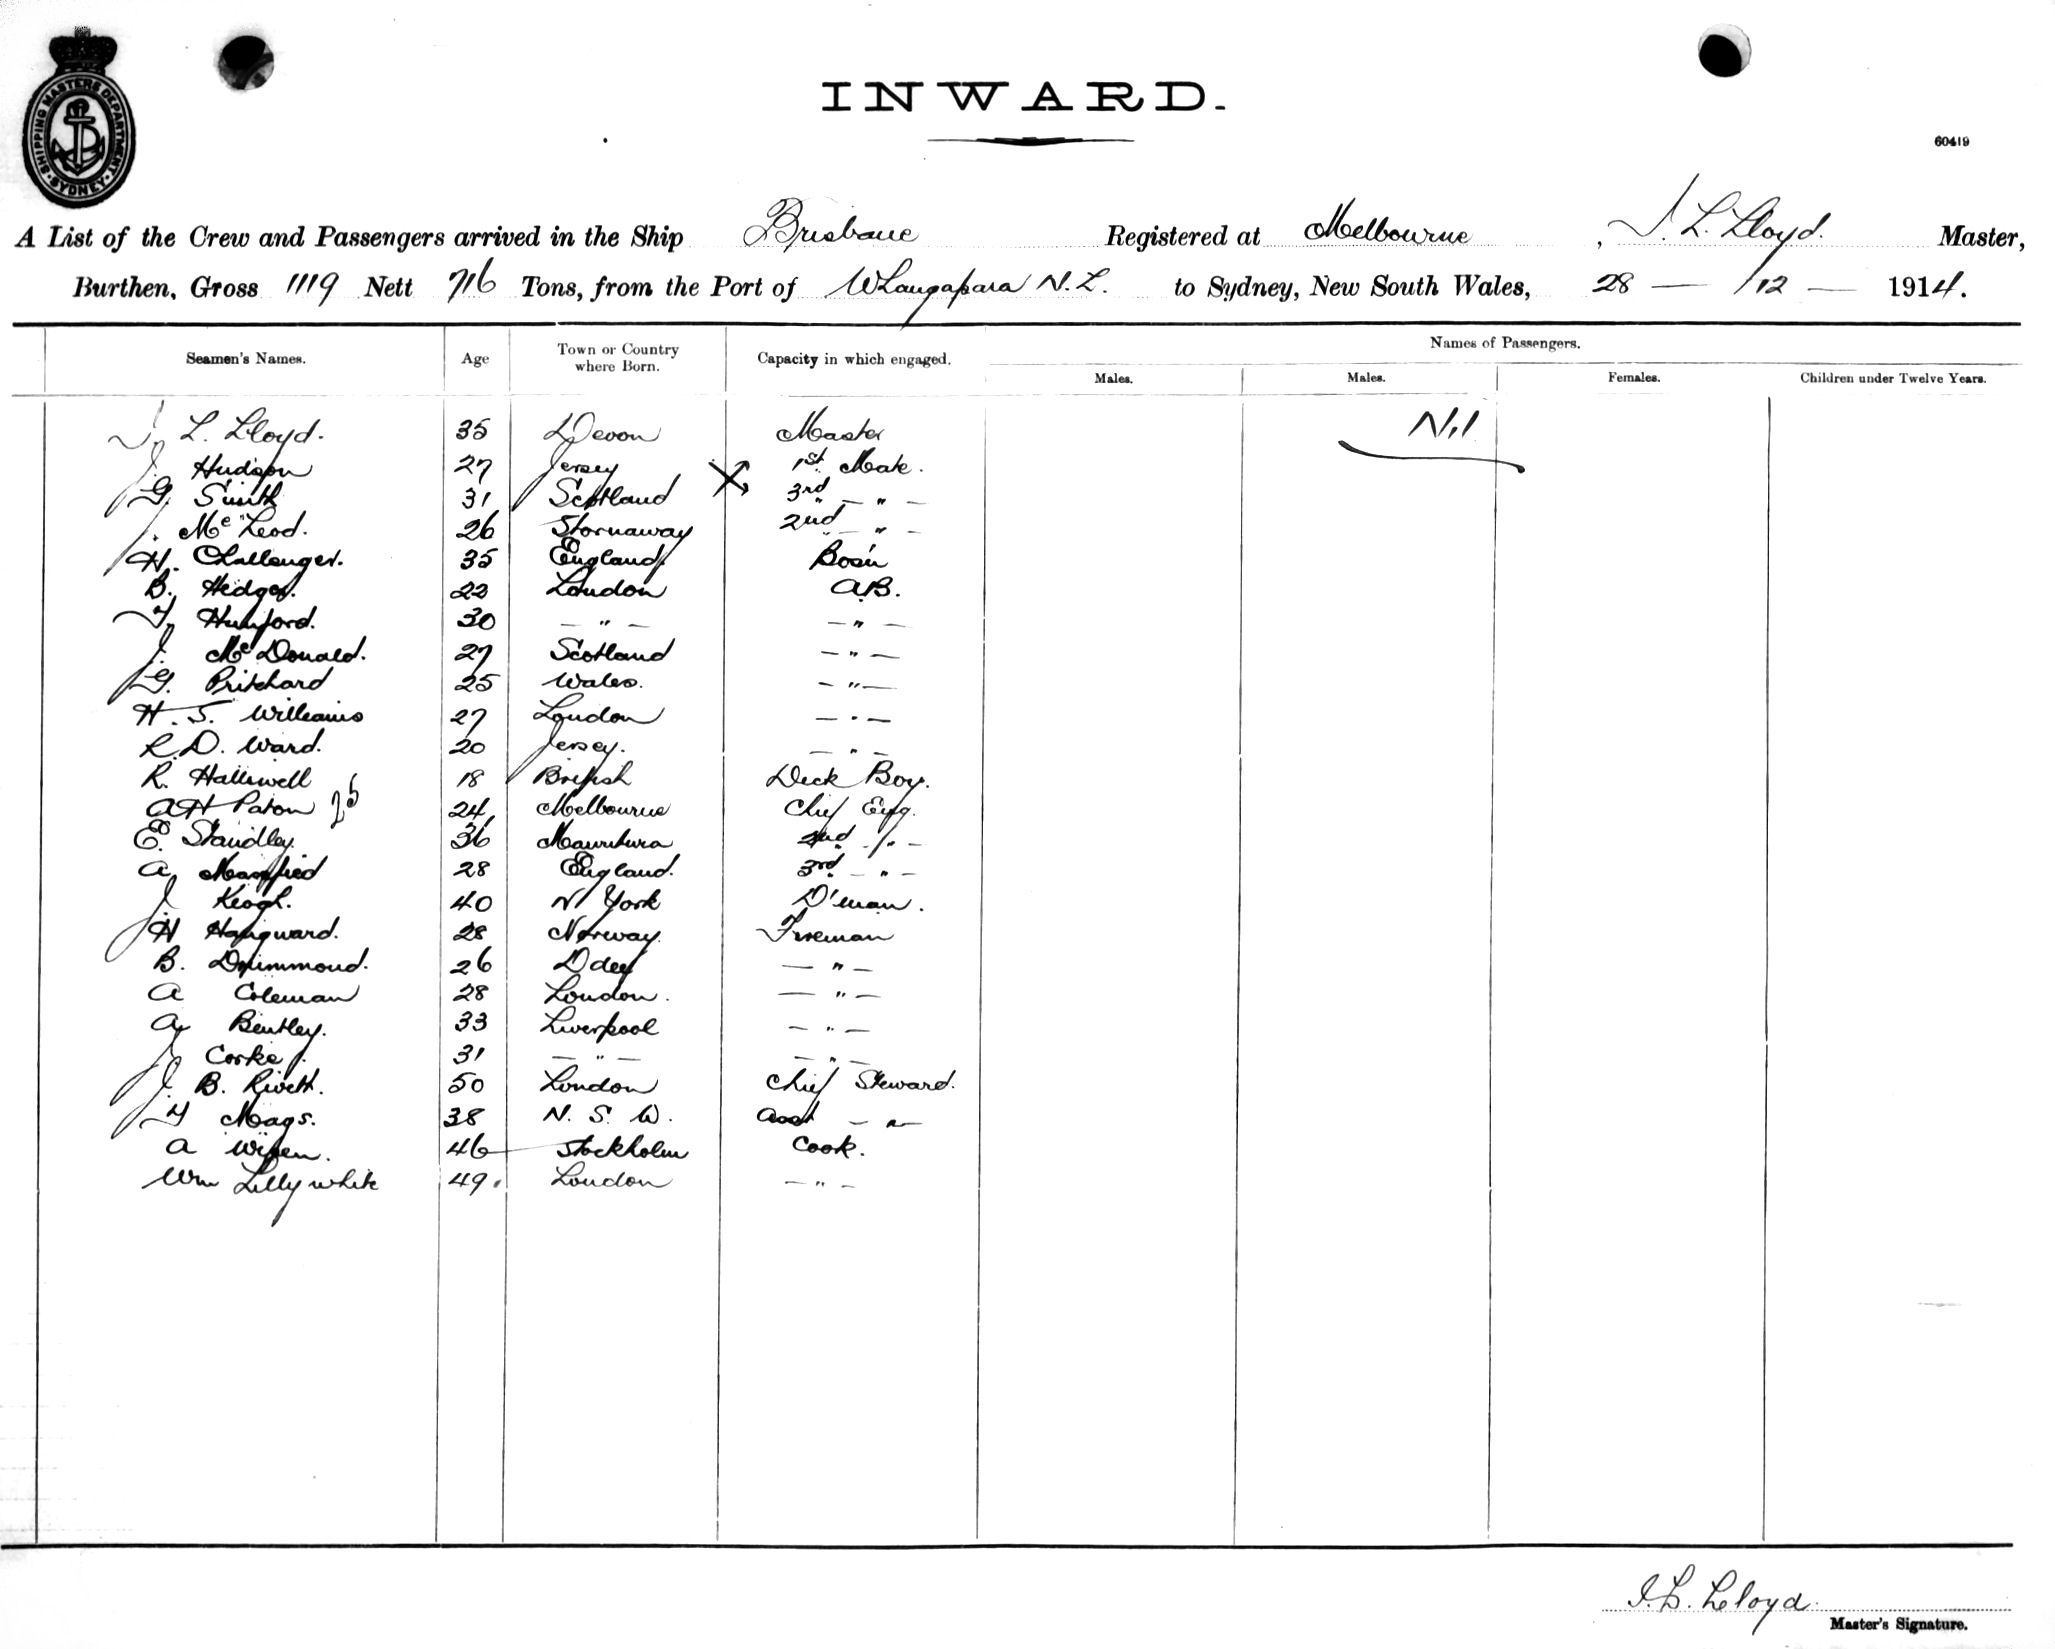 SHIPPING MASTERS DEPARTMENT
SYDNEY
INWARD.
60419
A List of the Crew and Passengers arrived in the Ship Brisbane Registered at Melbourne, J. L. Lloyd. Master,
Burthen, Gross 1119 Nett 716 Tons, from the Port of Whangapara N.Z. to Sydney, New South Wales, 28 — /12 — 1914.
Seamen's Names. Age Town or Country where Born. Capacity in which engaged. Names of Passengers.
Males. Males. Females. Children under Twelve Years.
L. Lloyd. 35 Devon Master Nil
J. Hudson 27 Jersey 1st Mate.
G. Smith 31 Scotland 3rd — " —
J. McLeod. 26 Stornaway 2nd — " —
H. Challenger. 35 England Bos'n
B. Hedges. 22 London A.B.
30 — " — — " —
J. McDonald. 27 Scotland — " —
G. Pritchard 25 Wales. — " —
H. S. Williams 27 London — " —
R. D. Ward. 20 Jersey. — " —
R. Halliwell 18 British Deck Boy.
A H Paton 25 24 Melbourne Chief Eng.
E. Standley. 36 2nd — " —
A 28 England. 3rd — " —
J. Keogh. 40 N York D'man.
H Hangward. 28 Norway. Fireman
B. Drummond. 26 — " —
A Coleman 28 London. — " —
A Bentley. 33 Liverpool — " —
J Corke. 31 — " — — " —
J. B. Rivett. 50 London Chief Steward.
Mags. 38 N. S. W. Asst — " —
A 46 Stockholm Cook.
Wm Lillywhite 49. London — " —
J. L. Lloyd
Master's Signature.